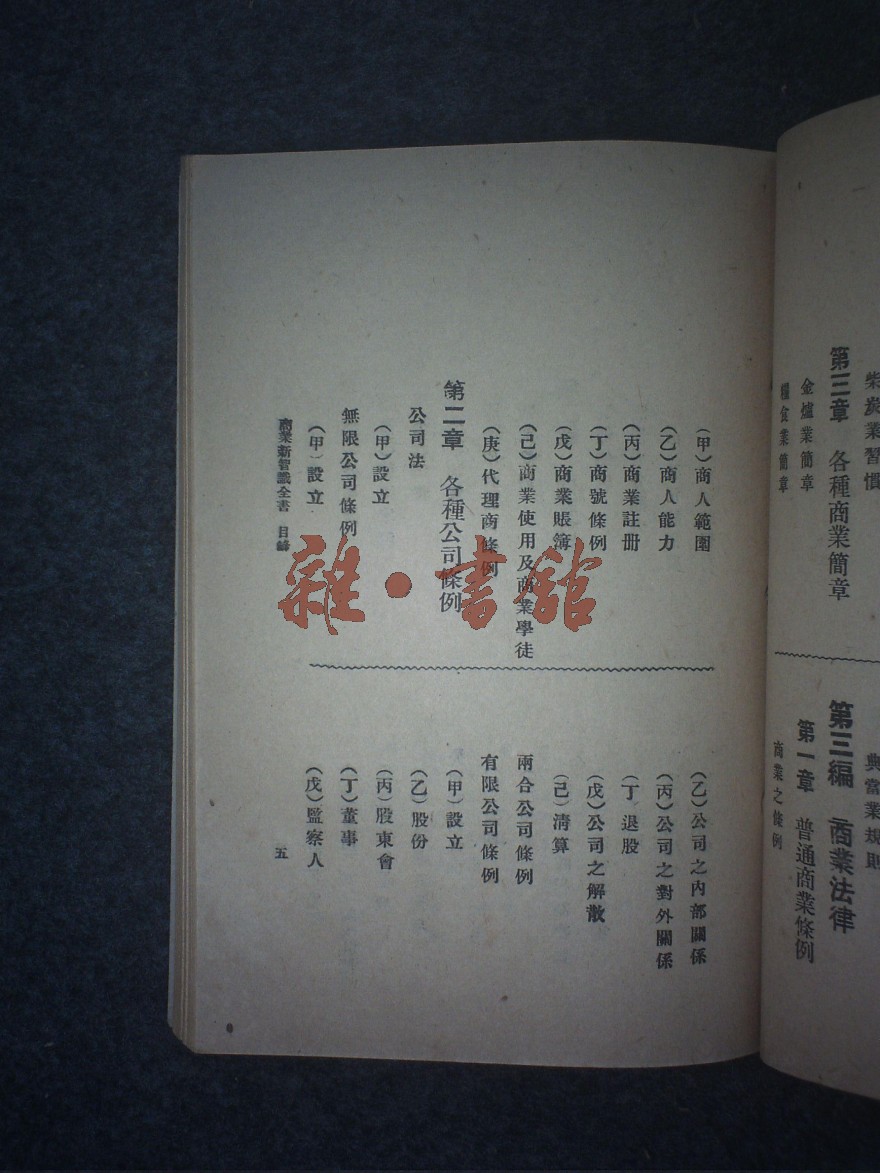 柴炭業習慣
第三章 各種商業簡章
金爐業簡章
糧食業簡章
典當業規則
第三編 商業法律
第一章 普通商業條例
商業之條例
(甲)商人範圍
(乙)商人能力
(丙)商業註册
(丁)商號條例
(戊)商業賬簿
(己)商業使用及商業學徒
(庚)代理商條例
第二章 各種公司條例
公司法
(甲)設立
無限公司條例
(甲)設立
(乙)公司之內部關係
(丙)公司之對外關係
(丁)退股
(戊)公司之解散
(己)淸算
兩合公司條例
有限公司條例
(甲)設立
(乙)股份
(丙)股東會
(丁)董事
(戊)監察人
商業新智識全書 目錄
五
雜·書館